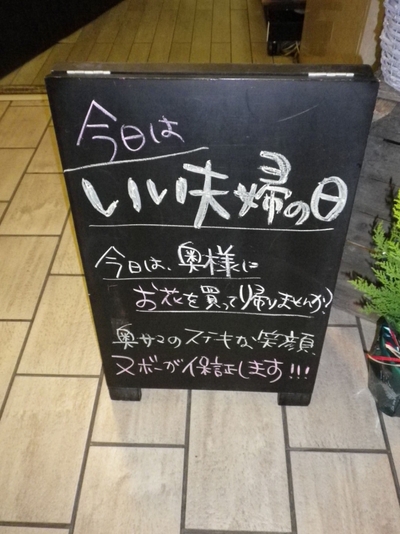 今日は
いい夫婦の日
今日は、奥様に
お花を買って帰りませんか?
奥サマのステキな笑顔
ヌボーが保証します!!!